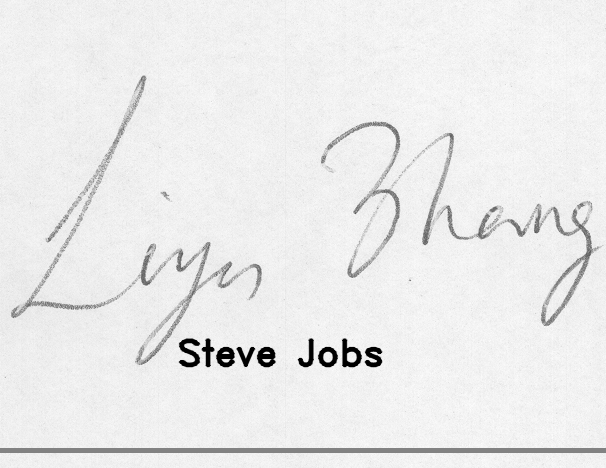 Liyun Zhang
Steve Jobs